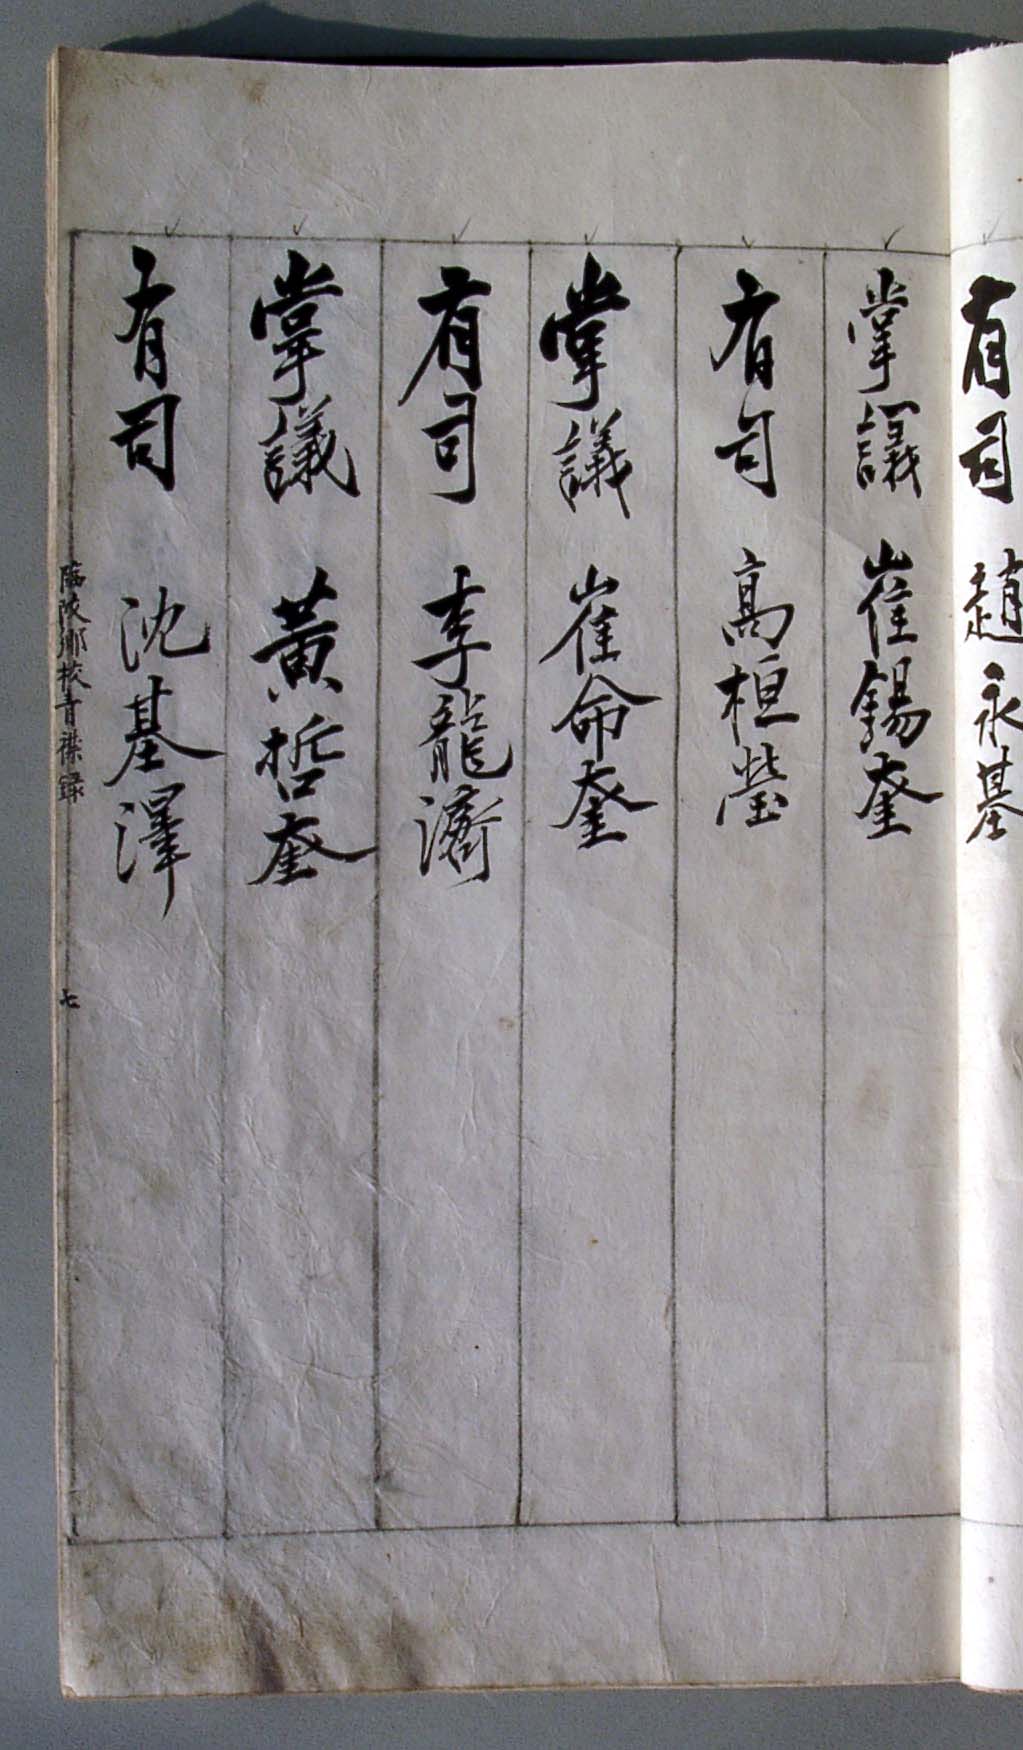 有司 趙永基
掌議 崔錫奎
有司 高桓瑩
掌議 崔命奎
有司 李龍濟
掌議 黃哲奎
有司 沈基澤
臨陂鄉校青襟錄
七